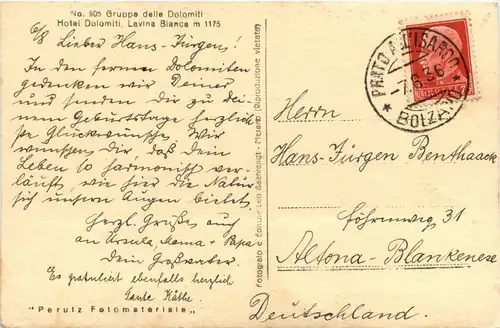 No. 605 Gruppe delle Dolomiti
Hotel Dolomiti, Lavina Bianca m 1175
6/8 Lieber Hans-Jürgen!
In den fernen Dolomiten
gedenken wir Deiner
und senden Dir zu Dei-
nem Geburtstage herzlich-
ste Glückwünsche. Wir
wünschen Dir daß Dein
Leben so harmonisch ver-
läuft, wie hier die Natur
sich unsern Augen bietet.
Herzl. Grüße auch
an Ursula, Mama + Papa
Dein Großvater.
Es gratuliert ebenfalls herzlich
Tante Käthe.
"Perutz Fotomateriale"
Fotografo e Editore Leo Baehrendt - Merano (Riproduzione vietata)
PRATO ALL'ISARCO
-7.8.36
* BOLZANO *
Herrn
Hans-Jürgen Benthaack
Föhrenweg 31
Altona-Blankenese
Deutschland.